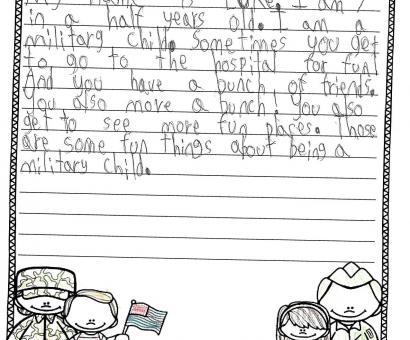 My name is Luke. I am 7
in a half years old. I am a
military child. Sometimes you get
to go to the hospital for fun!
And you have a bunch of friends.
You also move a bunch. You also
get to see more fun places. Those
are some fun things about being a
military child.